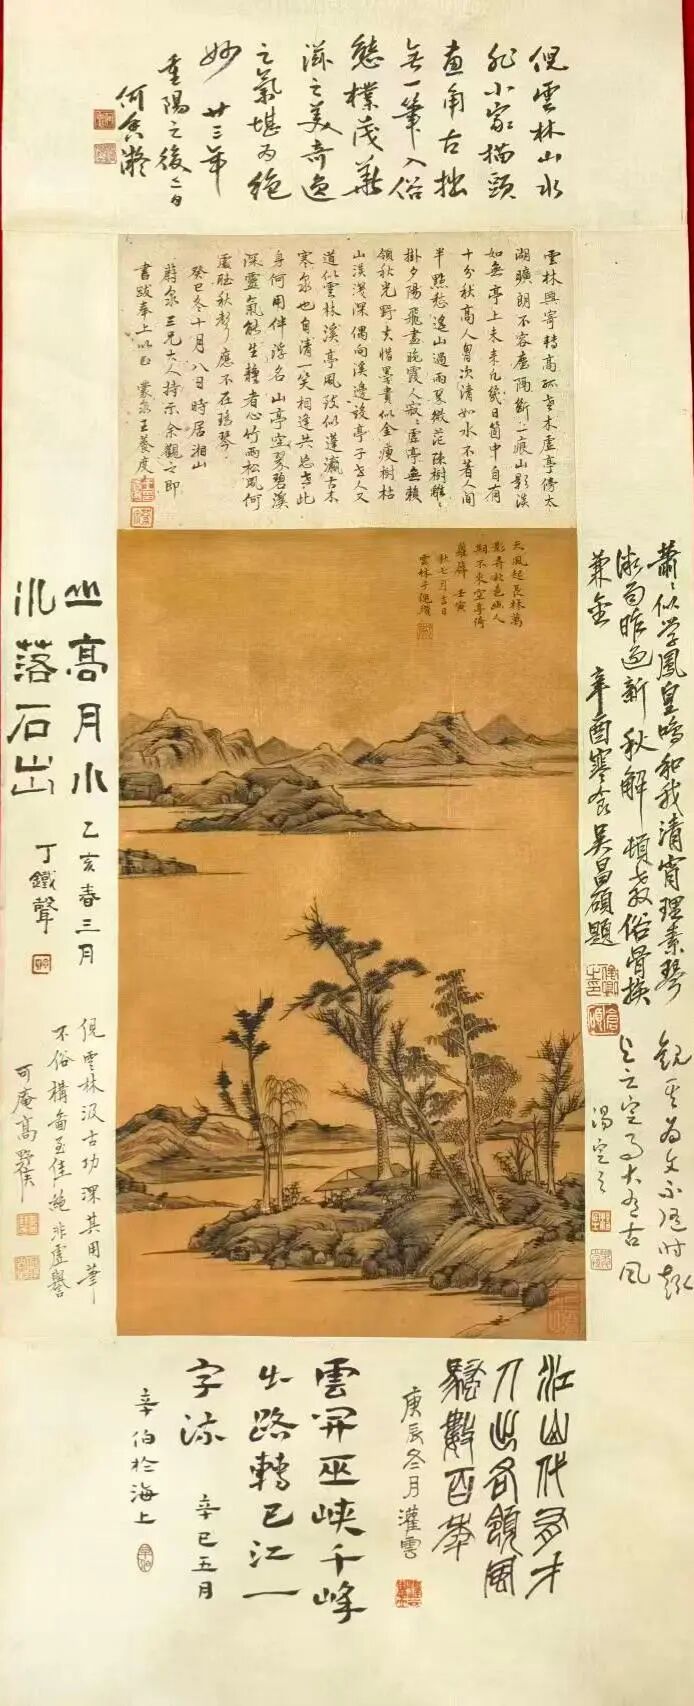 倪雲林山水
非小家描頭
畫角古拙
無一筆入俗
態樸茂華
滋之美奇逸
之氣堪為絶
妙 廿三年
重陽之後二日
何香凝
雲林興寄特高孤老木虛亭傍太
湖曠朗不容塵隔斷一痕山影淡
如無亭上未來凡幾日箇中自有
十分秋高人胸次清如水不著人間
半點愁遙山過雨翠微茫疎樹離離
掛夕陽飛盡晚霞人寂寂虛亭無賴
領秋光野夫惜墨貴似金瘦樹枯
山淡淺深偶向溪邊設亭子令人又
道似雲林溪亭風致似蓬瀛古木
寒泉也自清一笑相逢共忘言此
身何用伴浮名山亭空翠碧溪
深靈氣能生静者心竹雨松風何
處聽秋聲應不在瑤琴
癸巳冬十月八日時居湘山
蔚泉三兄大人持示余觀之即
書跋奉上以正 蒙泉王養度
天風起長林萬
影弄秋色幽人
期不來空亭倚
蘿薜 壬寅
秋七月吉日
雲林子倪瓚
蕭蕭似學鳳皇鳴和我清宵理素琴
微雨昨過新秋解頓教俗骨換
兼金 辛酉寒食吳昌碩題
觀其為文不隨時趨
上之空高大有古風
馮空之
山高月小
水落石出
乙亥春三月
丁鐵聲
倪雲林汲古功深其用筆
不俗構圖至佳絶非虛譽
可庵高野侯
江山代有才
人出各領風
騷數百年
庚辰冬月灌雲
雲開巫峽千峰
出路轉巴江一
字流 辛巳五月
辛伯於海上